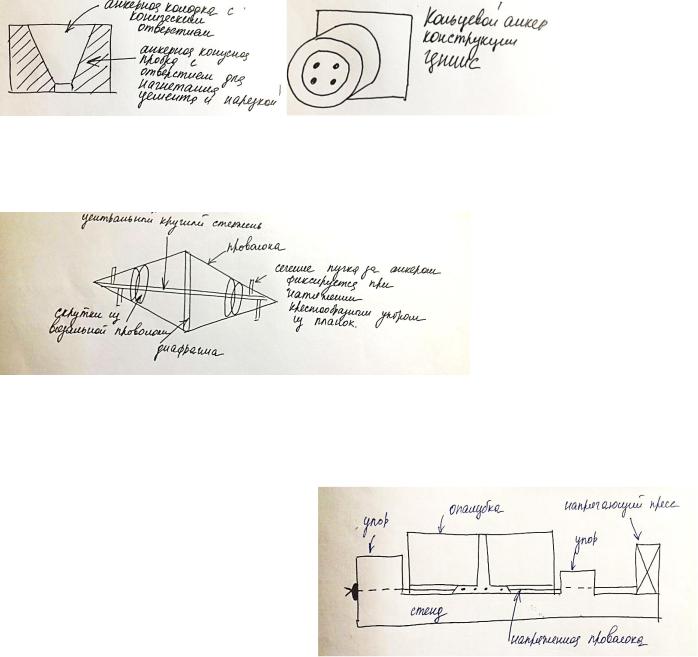 анкерная колодка с
коническим
отверстием
анкерная конусная
пробка с
отверстием для
нагнетания
цемента и нарезкой
Кольцевой анкер
конструкции
ЦНИИС
центральный круглый стержень
проволока
сечение пучка за анкером
фиксируется при
натяжении
крестообразным упором
из планок.
скрутки из
вязальной проволоки
диафрагма
упор
опалубка
напрягающий пресс
упор
стенд
напряженная проволока